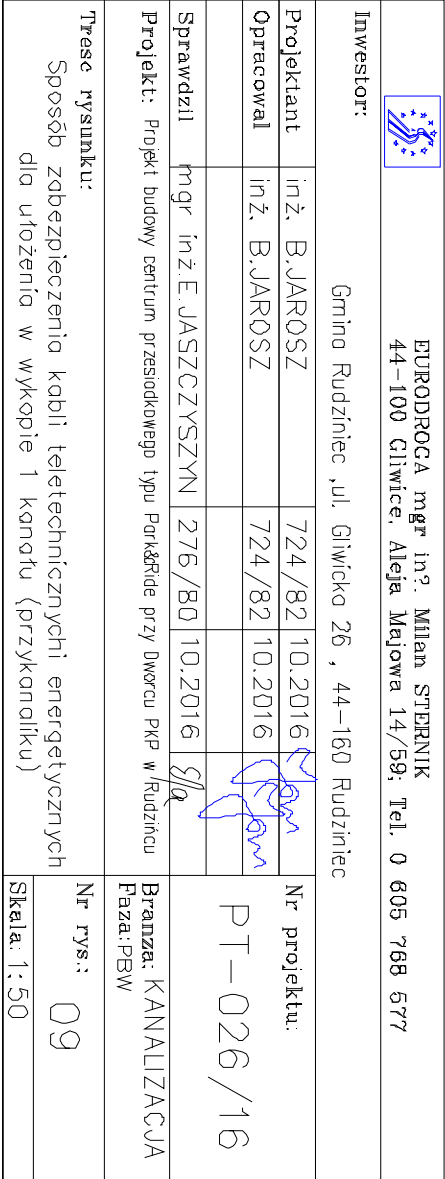 EURODROGA mgr in?. Milan STERNIK
44-100 Gliwice, Aleja Majowa 14/59; Tel. 0 605 768 577
Inwestor:
Gmina Rudziniec ,ul. Gliwicka 26 , 44-160 Rudziniec
Projektant inż. B.JAROSZ 724/82 10.2016
Opracowal inż. B.JAROSZ 724/82 10.2016
Sprawdzil mgr inż.E.JASZCZYSZYN 276/80 10.2016
Nr projektu:
PT-026/16
Projekt: Projekt budowy centrum przesiadkowego typu Park&Ride przy Dworcu PKP w Rudzińcu
Branza: KANALIZACJA
Faza:PBW
Tresc rysunku:
Sposób zabezpieczenia kabli teletechnicznychi energetycznych
dla ułożenia w wykopie 1 kanału (przykanaliku)
Nr rys.: 09
Skala: 1:50